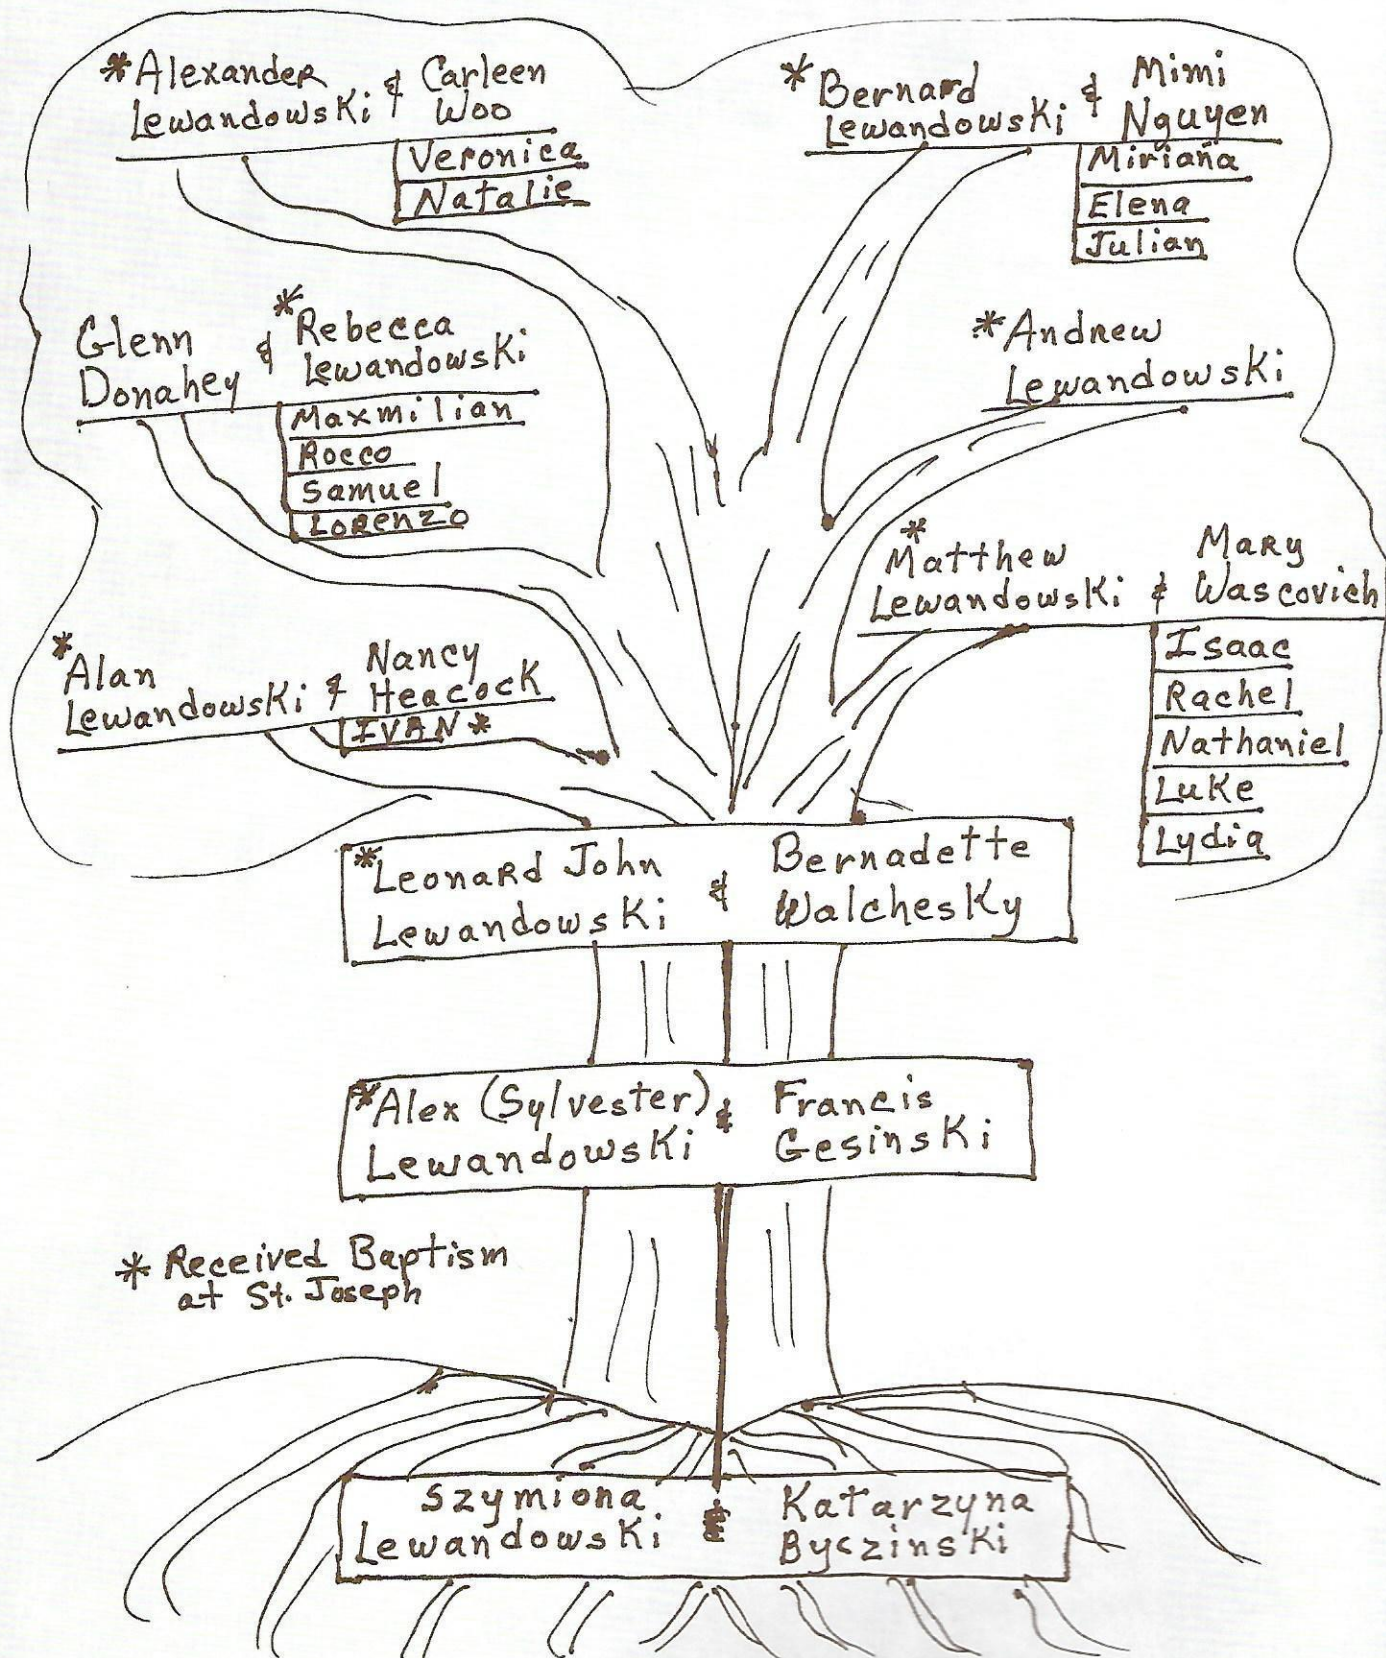 *Alexander
Lewandowski & Carleen
Woo
Veronica
Natalie
*Bernard
Lewandowski & Mimi
Nguyen
Miriana
Elena
Julian
Glenn
Donahey & *Rebecca
Lewandowski
Maxmilian
Rocco
Samuel
Lorenzo
*Andrew
Lewandowski
*Matthew
Lewandowski & Mary
Wascovich
Isaac
Rachel
Nathaniel
Luke
Lydia
*Alan
Lewandowski & Nancy
Heacock
IVAN*
*Leonard John
Lewandowski & Bernadette
Walchesky
*Alex (Sylvester)
Lewandowski & Francis
Gesinski
* Received Baptism
at St. Joseph
Szymiona
Lewandowski & Katarzyna
Byczinski